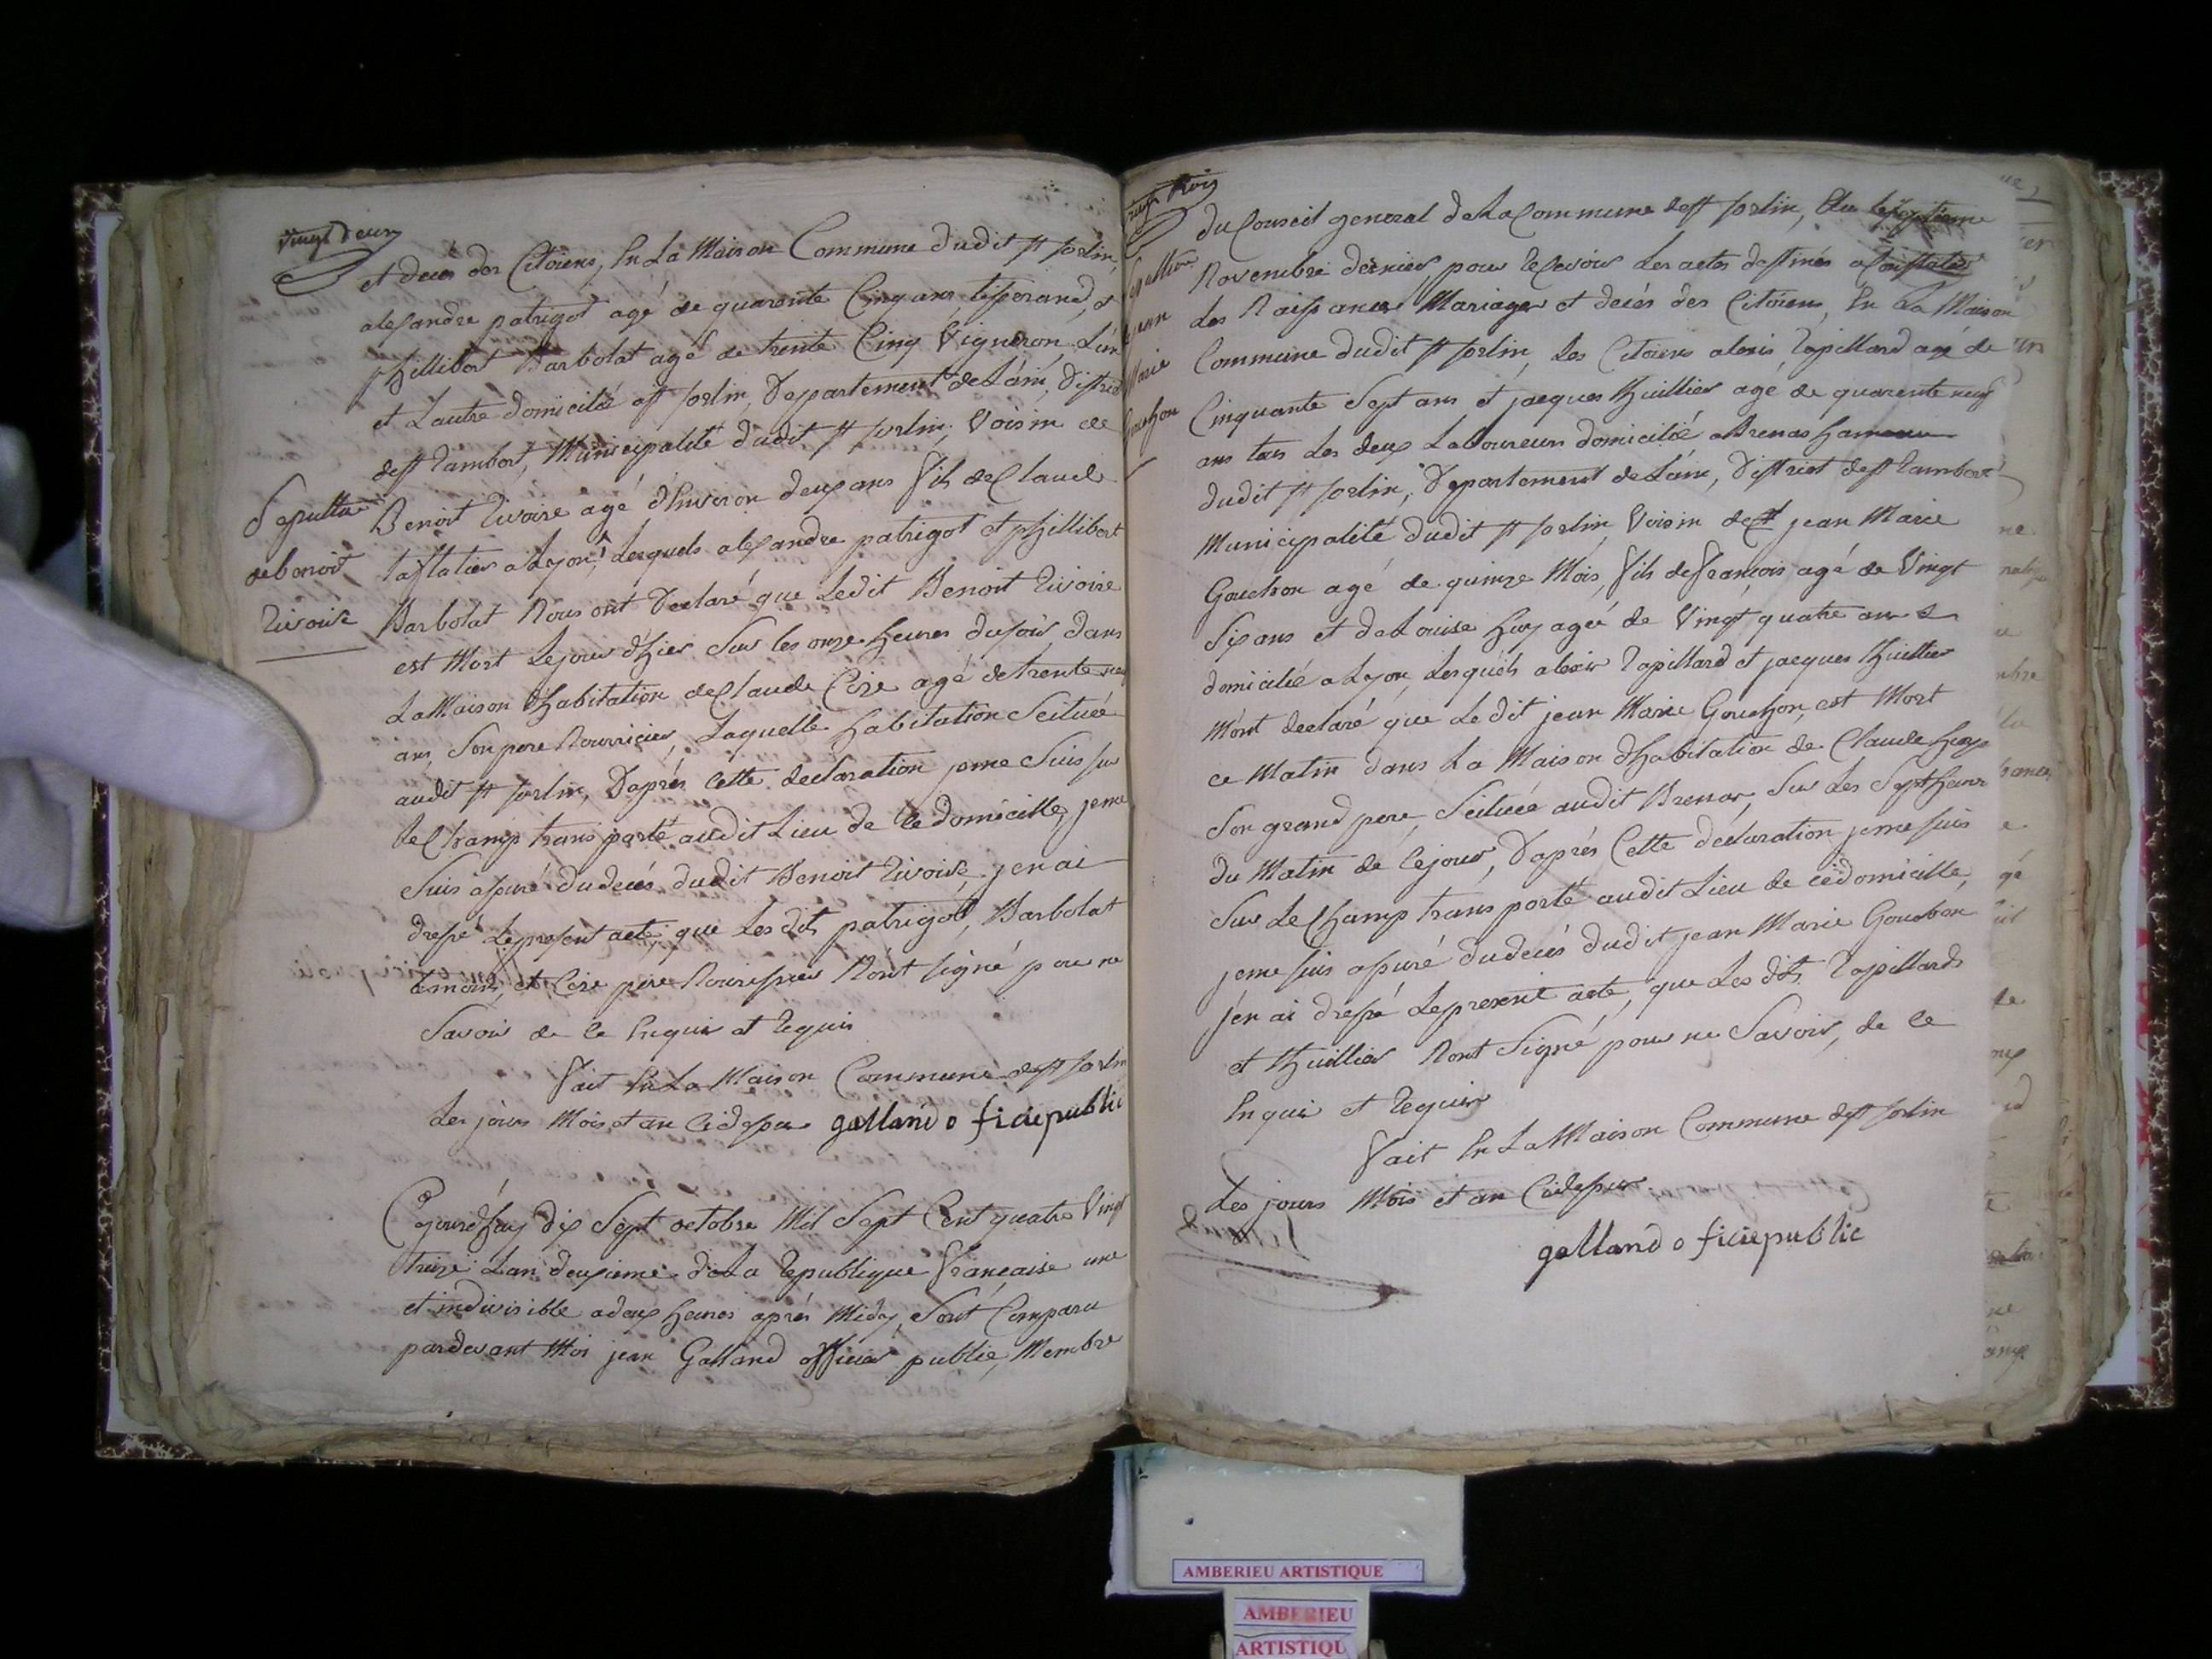 vingt deux
et decés des Citoiens, En La Maison Commune dudit st sorlin,
alexandre patrigot agé de quarente Cinq ans, tisserand, et
phillibert Barbolat agé de trente Cinq Vigneron L'un
et Lautre domicilié a st sorlin, Departement de L'ain, District
de st Rambert, Municipalité dudit st sorlin, Voisin de
Sepulture
de benoit
Rivoire
Benoit Rivoire agé dEnviron deux ans fils de Claude
taffatier a Lyon, Lesquels alexandre patrigot et phillibert
Barbolat Nous ont Declaré que Ledit Benoit Rivoire
est Mort Le jour d'hier Sur les onze heures du soir dans
La Maison d'habitation de Claude Cire agé de trente
ans, Son pere Nourricier, Laquelle habitation Scituée
audit st sorlin, D'aprés Cette declaration je me Suis sur
le Champ transporté audit Lieu de ce domicille, je me
Suis assuré du decés dudit Benoit Rivoire j'en ai
dressé Le present acte, que Les dits patrigot, Barbolat
temoins, et Cire pere Nourissier N'ont signé pour ne
Savoir de ce Enquis et Requis
fait En La Maison Commune de st sorlin
Les jours Mois et an Cidessus galland oficiepublic
Cejourdhuy dix Sept octobre Mil Sept Cent quatre Vingt
treize Lan deuxieme de La Republique française une
et indivisible a deux heures aprés Midy, Sont Comparu
pardevant Moi jean Galland officier public, Membre
vingt trois
Sepulture
jean
Marie
Gouchon
du Conseil general de La Commune de st sorlin, Elu
Novembre dernier pour Recevoir Les actes destinés a Constater
Les Naissances Mariages et decés des Citoiens, En La Maison
Commune dudit st sorlin, Les Citoiens alexis Rapillard agé de
Cinquante Sept ans et jacques thuillier agé de quarente neuf
ans tous Les deux Laboureurs domicilié a Brenas hameau
dudit st sorlin, Departement de L'ain, District de st Rambert
Municipalité dudit st sorlin, Voisin de jean Marie
Gouchon agé de quinze Mois, fils de françois agé de Vingt
Six ans et de Louise huy agée de Vingt quatre ans
domicilié a Lyon, Lesquels alexis Rapillard et jacques thuillier
M'ont declaré que Le dit jean Marie Gouchon, est Mort
ce Matin dans La Maison d'habitation de Claude huy
Son grand pere, Scituée audit Brenas, Sur Les Sept heures
du Matin de Ce jour, D'aprés Cette declaration je me suis
Sur Le Champ transporté audit Lieu de ce domicille,
je me suis assuré du decés dudit jean Marie Gouchon
j'en ai dressé Le present acte, que Les dits Rapillard
et thuillier N'ont Signé pour ne Savoir, de Ce
Enquis et Requis
fait En La Maison Commune de st sorlin
Les jours Mois et an Cidessus
galland oficiepublic
AMBERIEU ARTISTIQUE
AMBERIEU
ARTISTIQU